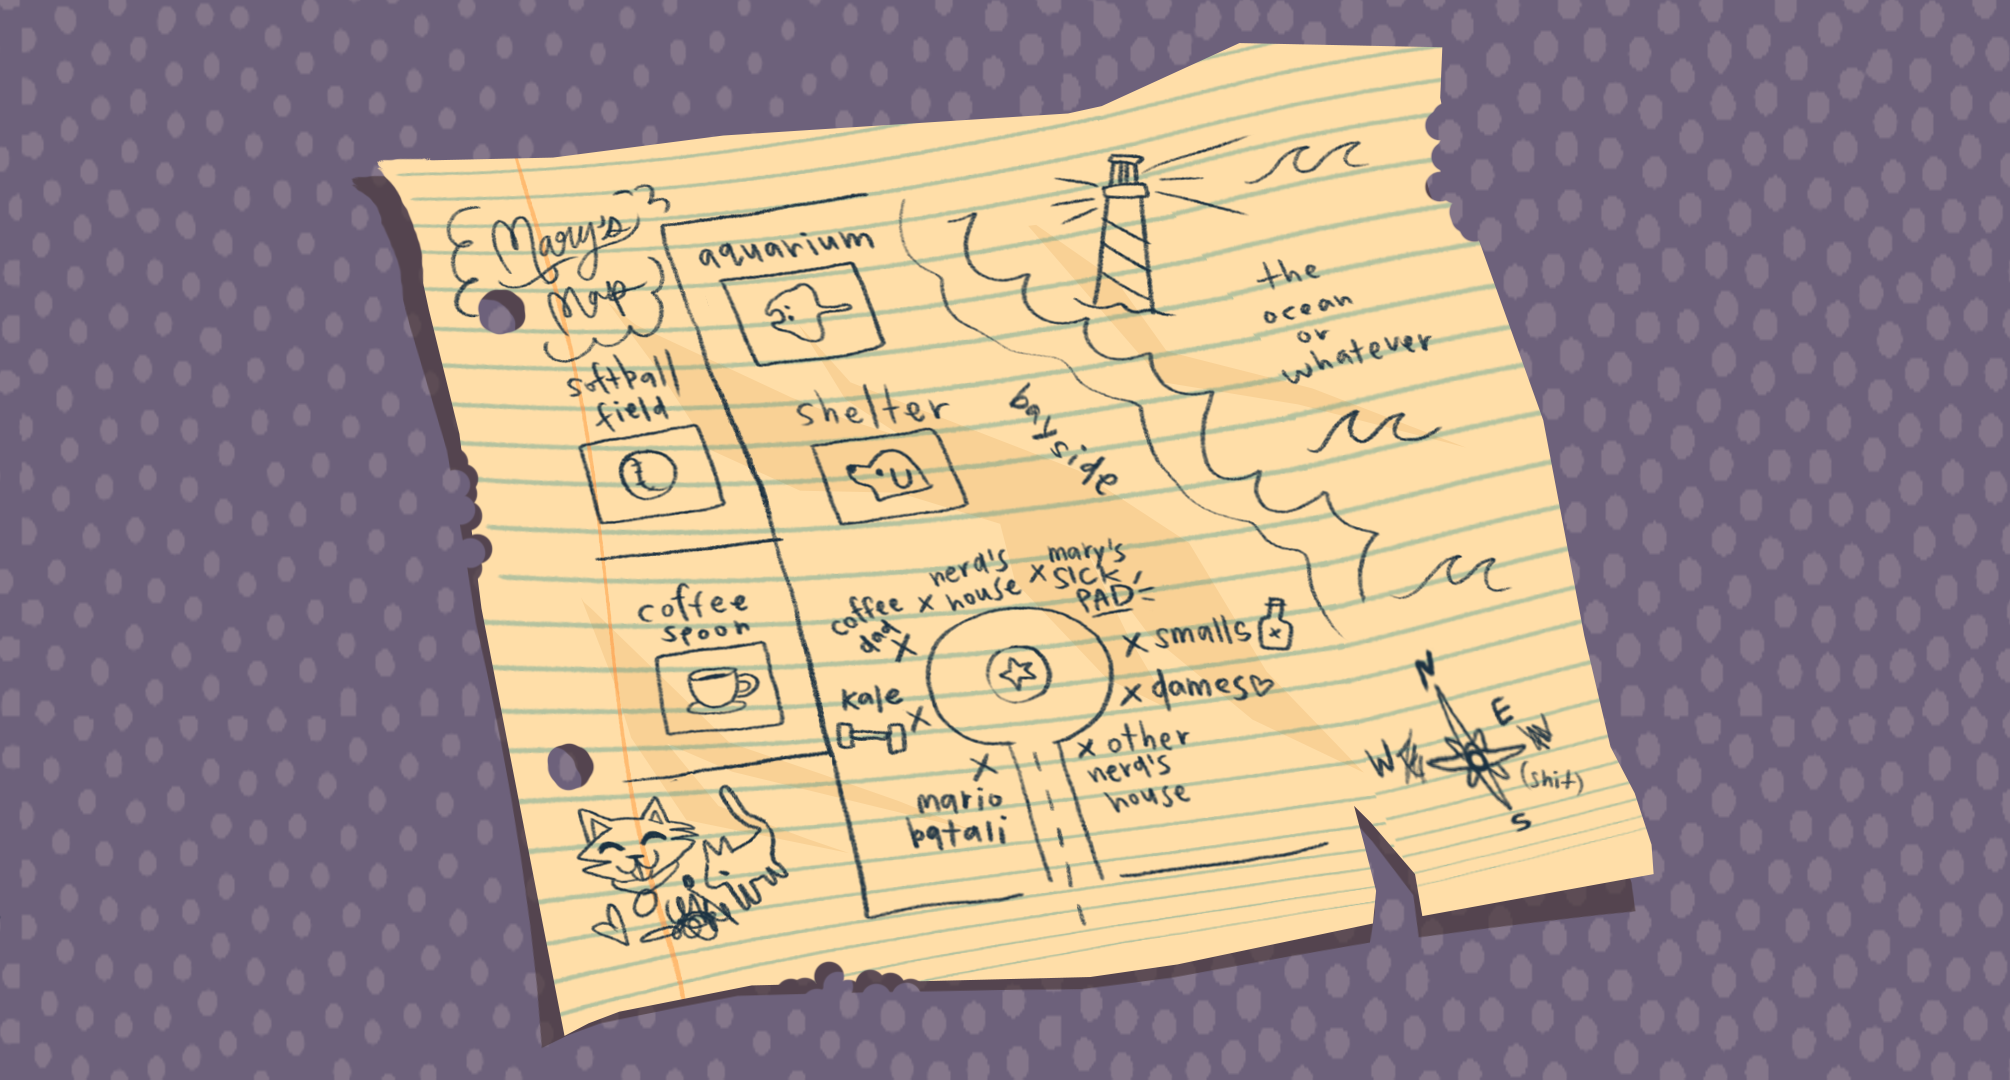 Mary's
Map
aquarium
softball
field
shelter
bayside
the
ocean
or
whatever
coffee
spoon
coffee
dad X
X nerd's
house
X mary's
SICK
PAD
X smalls
X dames
kale
X
X
mario
batali
X other
nerd's
house
N
E
W
W
(shit)
S